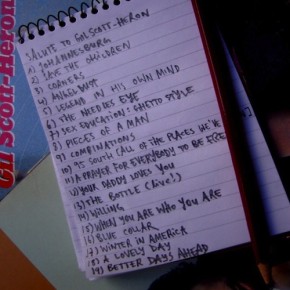 Gil Scott-Heron
SALUTE TO GIL SCOTT-HERON
1) JOHANNESBURG
2) SAVE THE CHILDREN
3) CORNERS
4) ANGEL DUST
5) LEGEND IN HIS OWN MIND
6) THE NEEDLES EYE
7) SEX EDUCATION: GHETTO STYLE
8) PIECES OF A MAN
9) COMBINATIONS
10) 95 SOUTH (ALL OF THE RACES WE'VE
11) A PRAYER FOR EVERYBODY TO BE FREE
12) YOUR DADDY LOVES YOU
13) THE BOTTLE (LIVE!)
14) WILLING
15) WHEN YOU ARE WHO YOU ARE
16) BLUE COLLAR
17) WINTER IN AMERICA
18) A LOVELY DAY
19) BETTER DAYS AHEAD